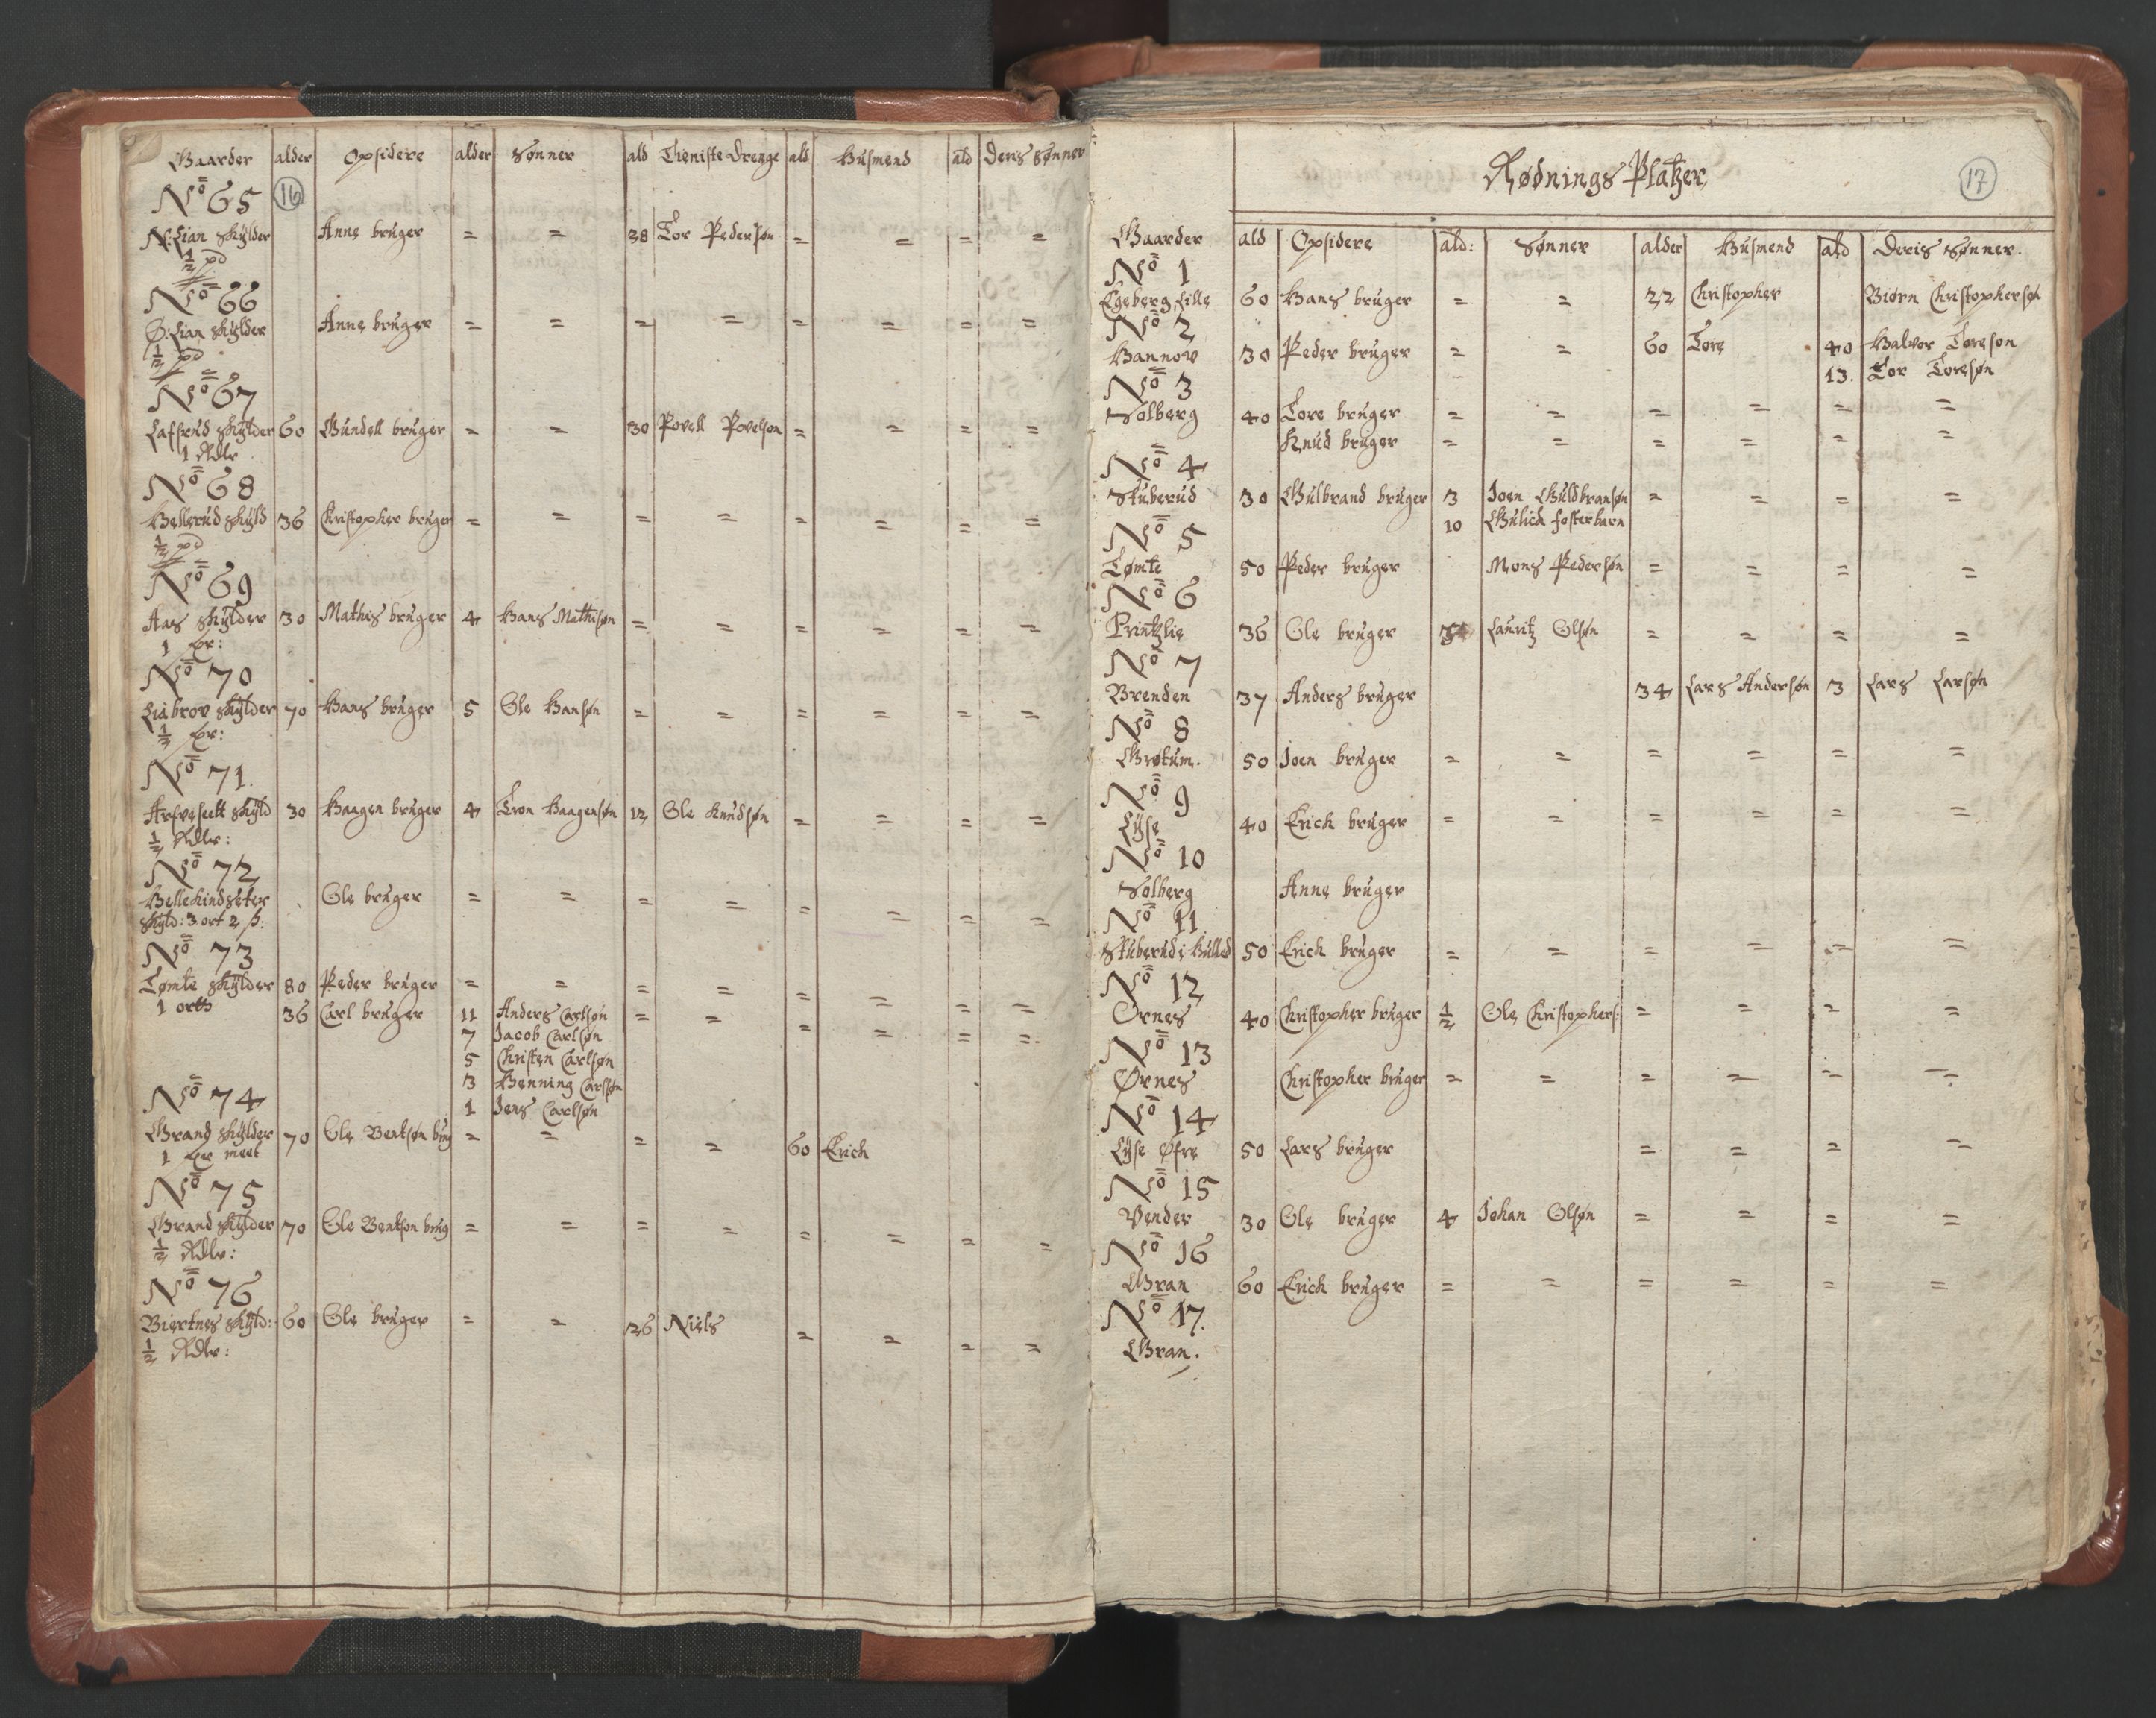 Gaarder alder Opsidere alder Sønner ald Tieniste Drenge ald Husmend ald Deris Sønner
No 65 16
N: Lian skylder Anne bruger = = 38 Tor Pedersøn = = = =
½ pd
No 66
Ø: Lian skylder Anne bruger = = = = = = = =
½ pd
No 67
Lafsrud skylder 60 Gundell bruger = = 30 Povell Povelson = = = =
1 Rdlr
No 68
Hellerud skyld 36 Christopher bruger = = = = = = = =
½ pd
No 69
Aas skylder 30 Mathis bruger 4 Hans Mathisøn = = = = = =
1 fr:
No 70
Liabrov skylder 70 Hans bruger 5 Ole Hansøn = = = = = =
½ fr:
No 71.
Arfvesett skyld 30 Haagen bruger 4 Tron Haagensøn 12 Ole Knudsøn = = = =
½ Rdlr:
No 72
Hellekindseter Ole bruger = = = = = = = =
skyld: 3 ort 2 ß:
No 73
Tømte skylder 80 Peder bruger = = = = = = = =
1 orth 36 Carl bruger 11 Anders Carlsøn = = = = = =
7 Jacob Carlsøn
5 Christen Carlsøn
3 Henning Carlsøn
No 74 1 Jens Carlsøn
Grand skylder 70 Ole Bentsøn brug = = = = 60 Erich
1 fr meet
No 75
Grand skylder 70 Ole Bentson brug = = = = = = = =
½ Rdlr:
No 76
Biertnes skyld: 60 Ole bruger = = 26 Niels = = = =
½ Rdlr:
Rødnings Platzer 17
Gaarder ald Opsidere ald: Sønner alder Husmend ald Deris Sønner.
No 1
Egeberg Lille 60 Hans bruger = = 22 Christopher Biørn Christophersøn
No 2
Hannov 30 Peder bruger = = 60 Tore 40 Halvor Toreson
13. Tor Toresøn
No 3
Solberg 40 Tore bruger = = = = = =
Knud bruger = = = = = =
No 4
Stuberud 30 Gulbrand bruger 3 Joen Guldbransøn = = = =
10 Gulich fosterbarn
No 5
Tømte 50 Peder bruger Mons Pedersøn = = = =
No 6
Printzlie 36 Ole bruger Lauritz Olsøn = = = =
No 7
Brenden 37 Anders bruger 34 Lars Andersøn 3 Lars Larsøn
No 8
Grøtum. 50 Joen bruger = = = = = =
No 9
Lyse 40 Erich bruger = = = = = =
No 10
Solberg Anne bruger
No 11
Stuberud i Hulled 50 Erich bruger = = = = = =
No 12
Ornes 40 Christopher bruger ½ Ole Christophers: = = = =
No 13
Ørnes Christopher bruger = = = = = =
No 14
Lyse Øfre 50 Lars bruger = = = =
No 15
Vender 30 Ole bruger 4 Johan Olsøn = = = =
No 16
Gran 60 Erich bruger = = = = = =
No 17.
Gran.